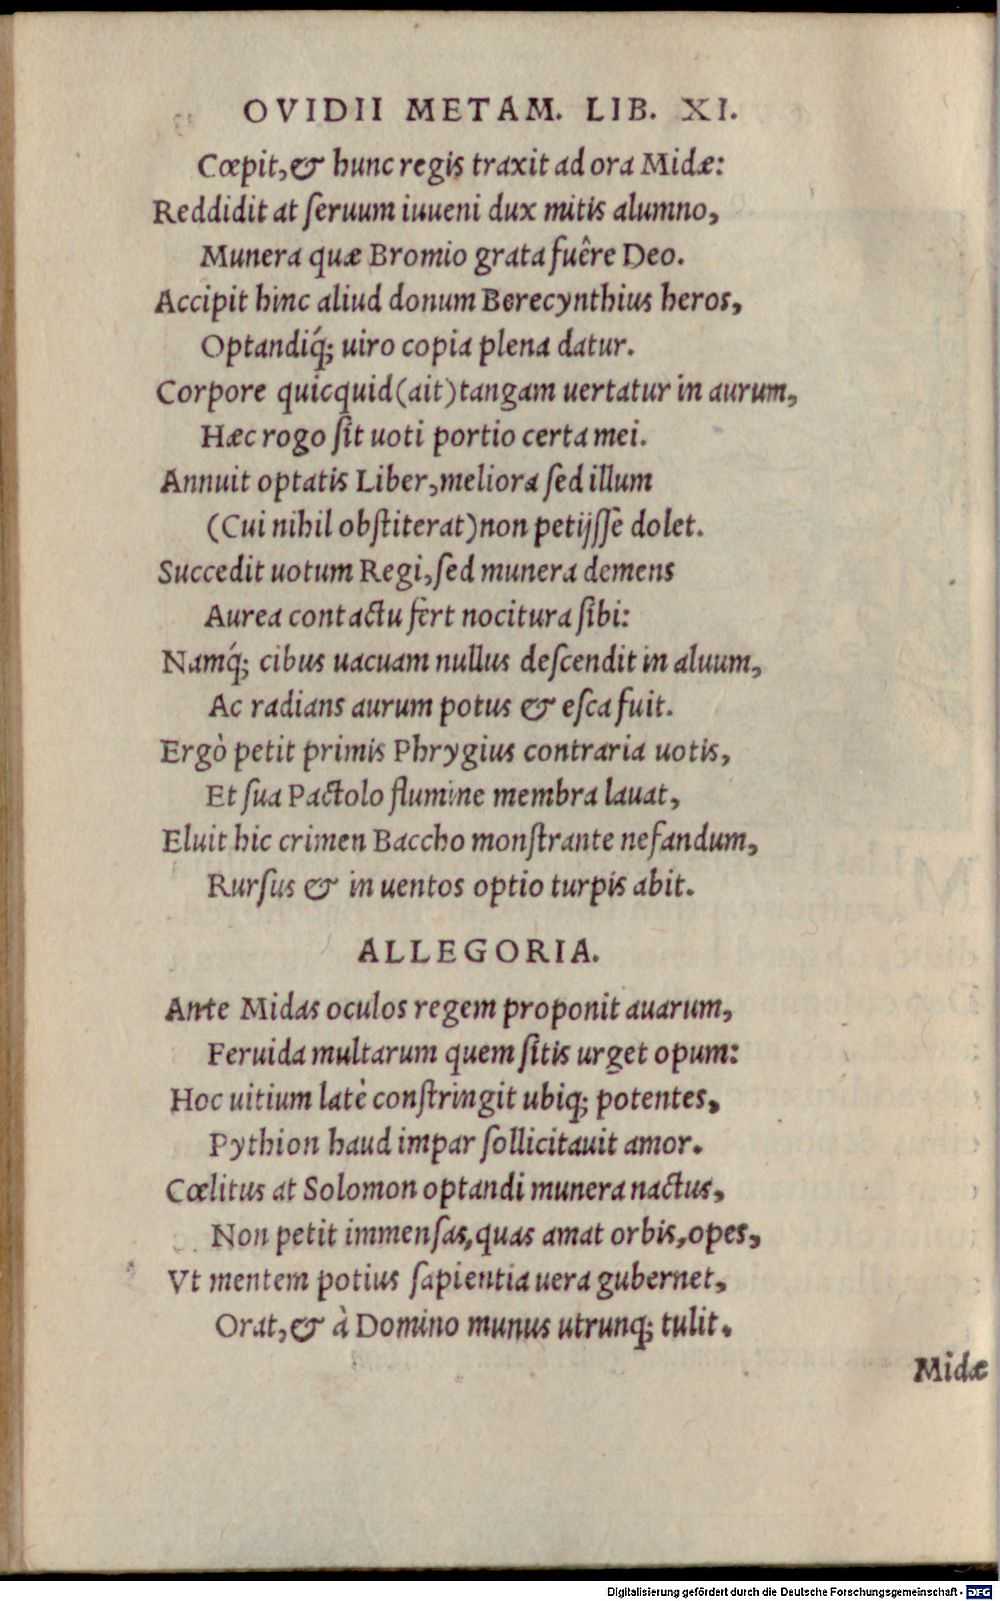 OVIDII METAM. LIB. XI.
Cœpit, & hunc regis traxit ad ora Midæ:
Reddidit at ſeruum iuueni dux mitis alumno,
Munera quæ Bromio grata fuêre Deo.
Accipit hinc aliud donum Berecynthius heros,
Optandiq́; uiro copia plena datur.
Corpore quicquid (ait) tangam uertatur in aurum,
Hæc rogo ſit uoti portio certa mei.
Annuit optatis Liber, meliora ſed illum
(Cui nihil obſtiterat) non petijſſe dolet.
Succedit uotum Regi, ſed munera demens
Aurea contactu fert nocitura ſibi:
Namq́; cibus uacuam nullus deſcendit in aluum,
Ac radians aurum potus & eſca fuit.
Ergò petit primis Phrygius contraria uotis,
Et ſua Pactolo flumine membra lauat,
Eluit hic crimen Baccho monſtrante nefandum,
Rurſus & in uentos optio turpis abit.
ALLEGORIA.
Ante Midas oculos regem proponit auarum,
Feruida multarum quem ſitis urget opum:
Hoc uitium latè conſtringit ubiq; potentes,
Pythion haud impar ſollicitauit amor.
Cœlitus at Solomon optandi munera nactus,
Non petit immenſas, quas amat orbis, opes,
Vt mentem potius ſapientia uera gubernet,
Orat, & à Domino munus utrunq; tulit.
Midæ
Digitalisierung gefördert durch die Deutsche Forschungsgemeinschaft - DFG